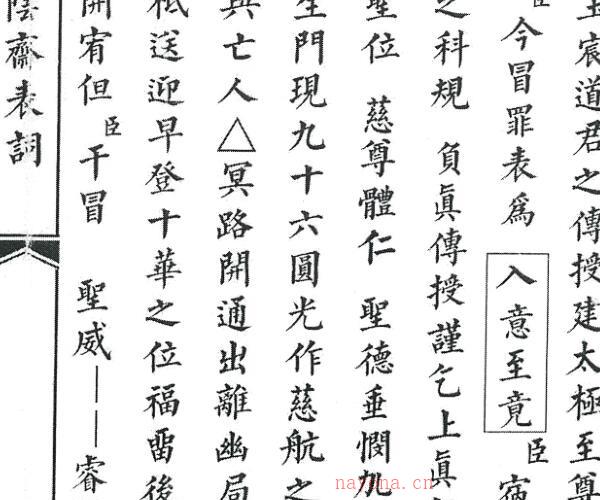 玉宸道君之傳授建太極至尊
臣今冒罪表爲入意至竟臣宿
之科規 負眞傳授謹乞上眞
聖位 慈尊體仁 聖德垂憫九
生門現九十六圓光作慈航之
與亡人△冥路開通出離幽局
祗送迎早登十華之位福畱後
開宥但臣干冒 聖威——睿
陰齋表詞
nayona.cn